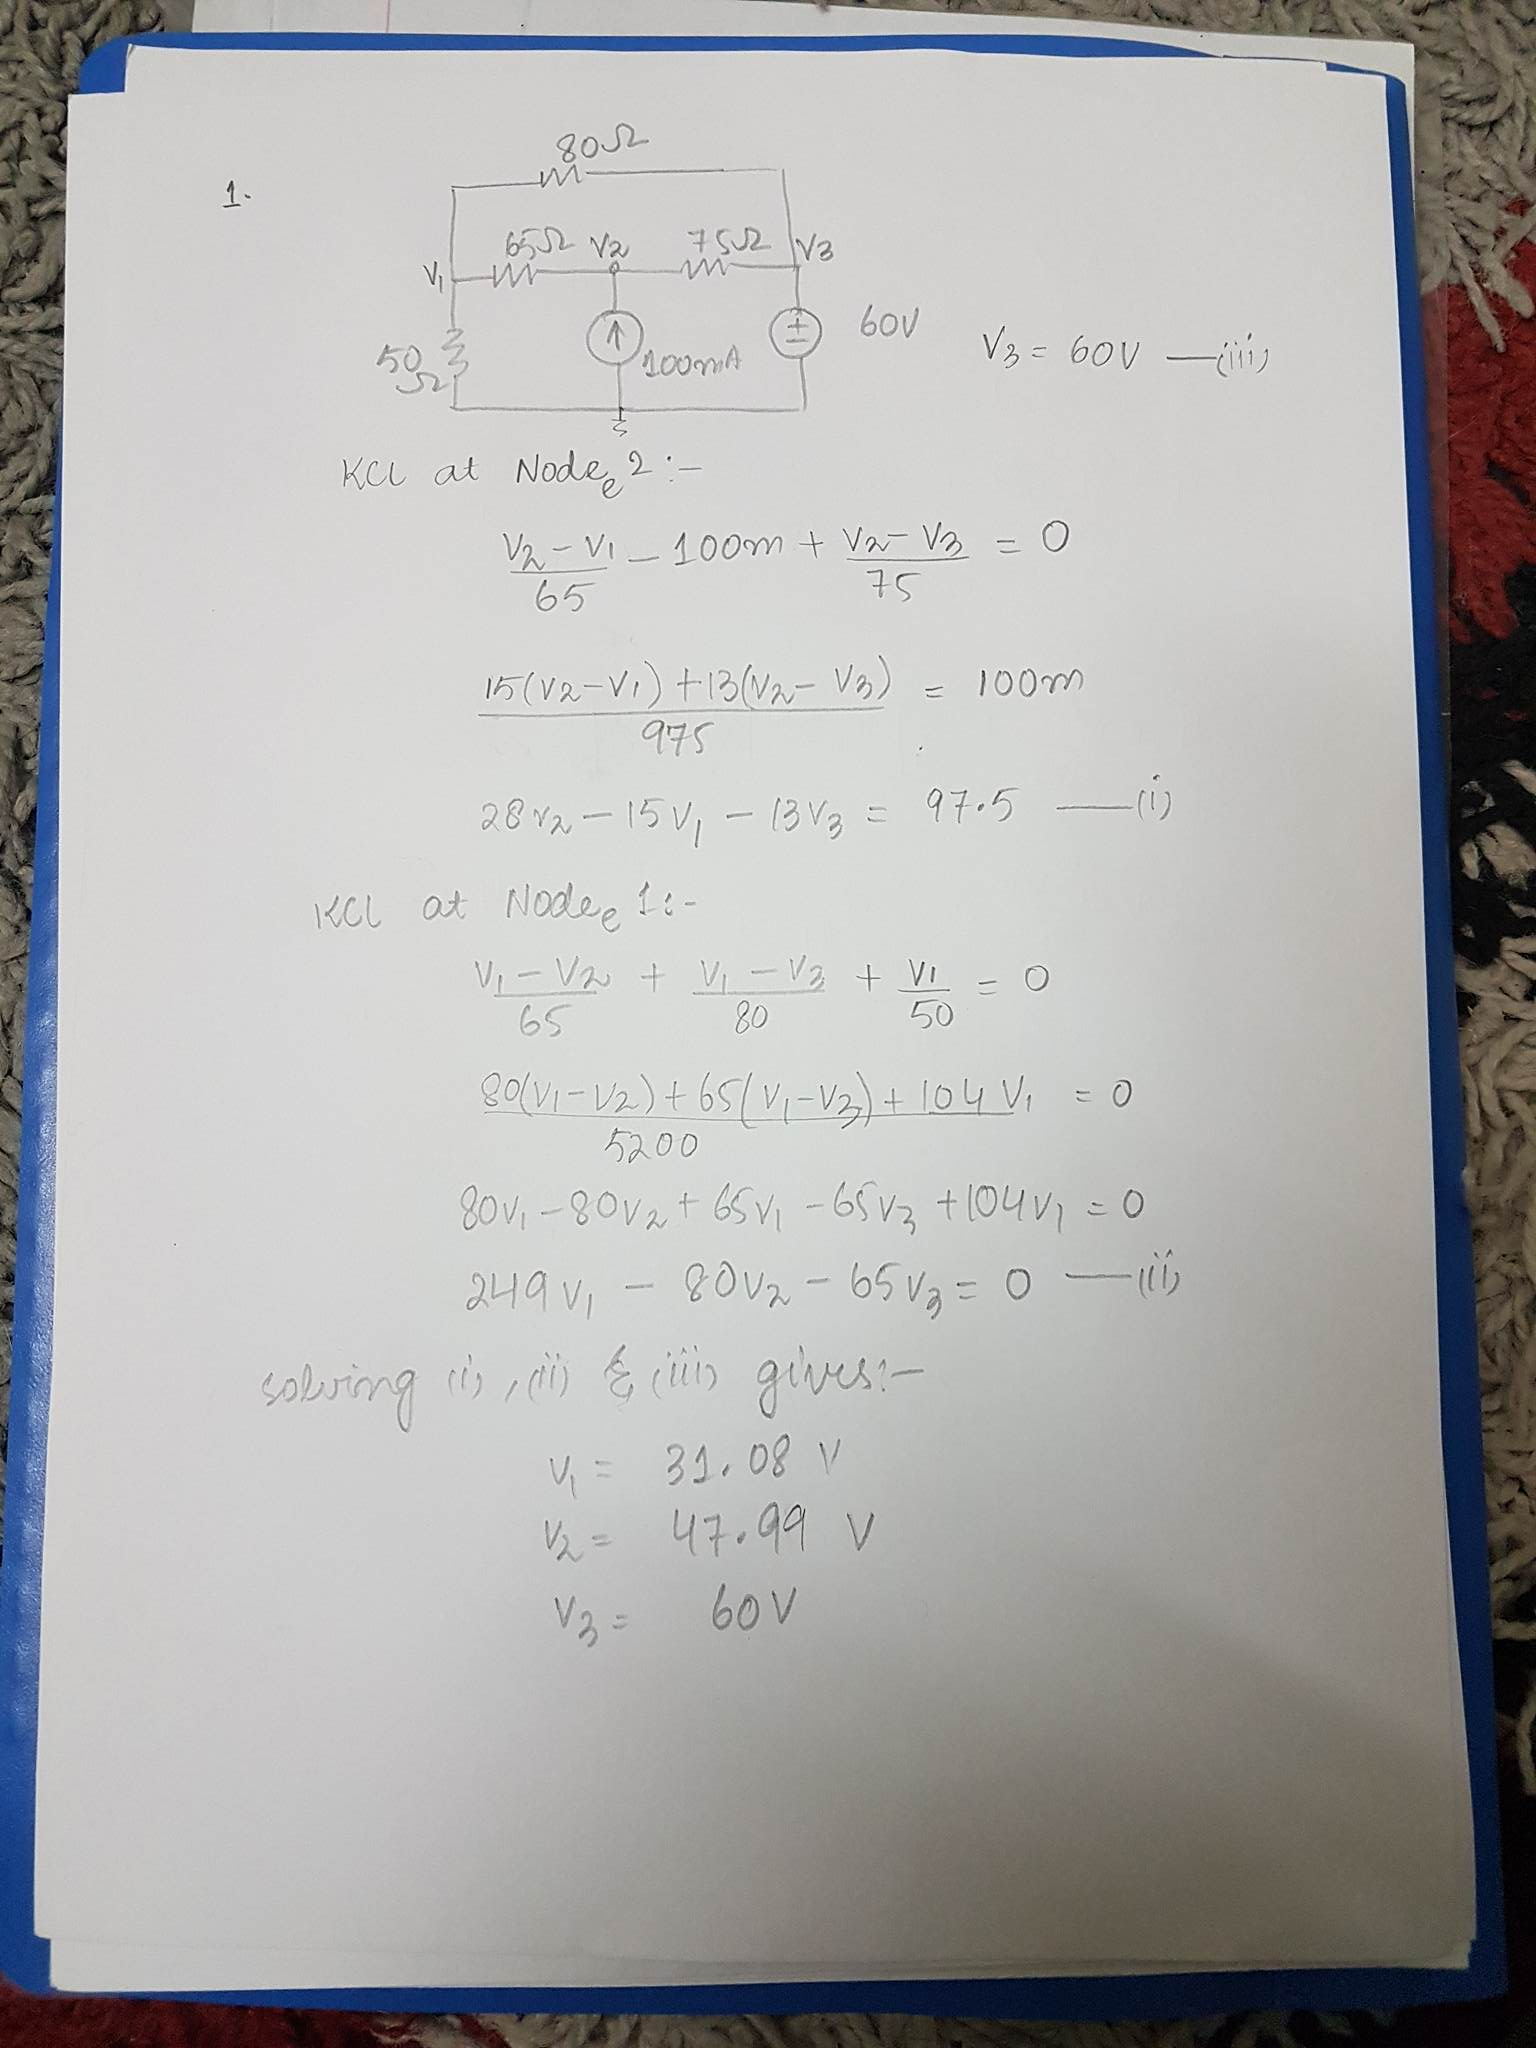 1.
80Ω
65Ω V2 75Ω V3
V1
50Ω
100mA
60V
V3 = 60V —(iii)
KCL at Node e 2 :-
V2 - V1 / 65 - 100m + V2 - V3 / 75 = 0
15(V2-V1) + 13(V2-V3) / 975 = 100m
28V2 - 15V1 - 13V3 = 97.5 —(i)
KCL at Node e 1 :-
V1 - V2 / 65 + V1 - V3 / 80 + V1 / 50 = 0
80(V1-V2) + 65(V1-V3) + 104V1 / 5200 = 0
80V1 - 80V2 + 65V1 - 65V3 + 104V1 = 0
249V1 - 80V2 - 65V3 = 0 —(ii)
solving (i), (ii) & (iii) gives:-
V1 = 31.08 V
V2 = 47.99 V
V3 = 60V